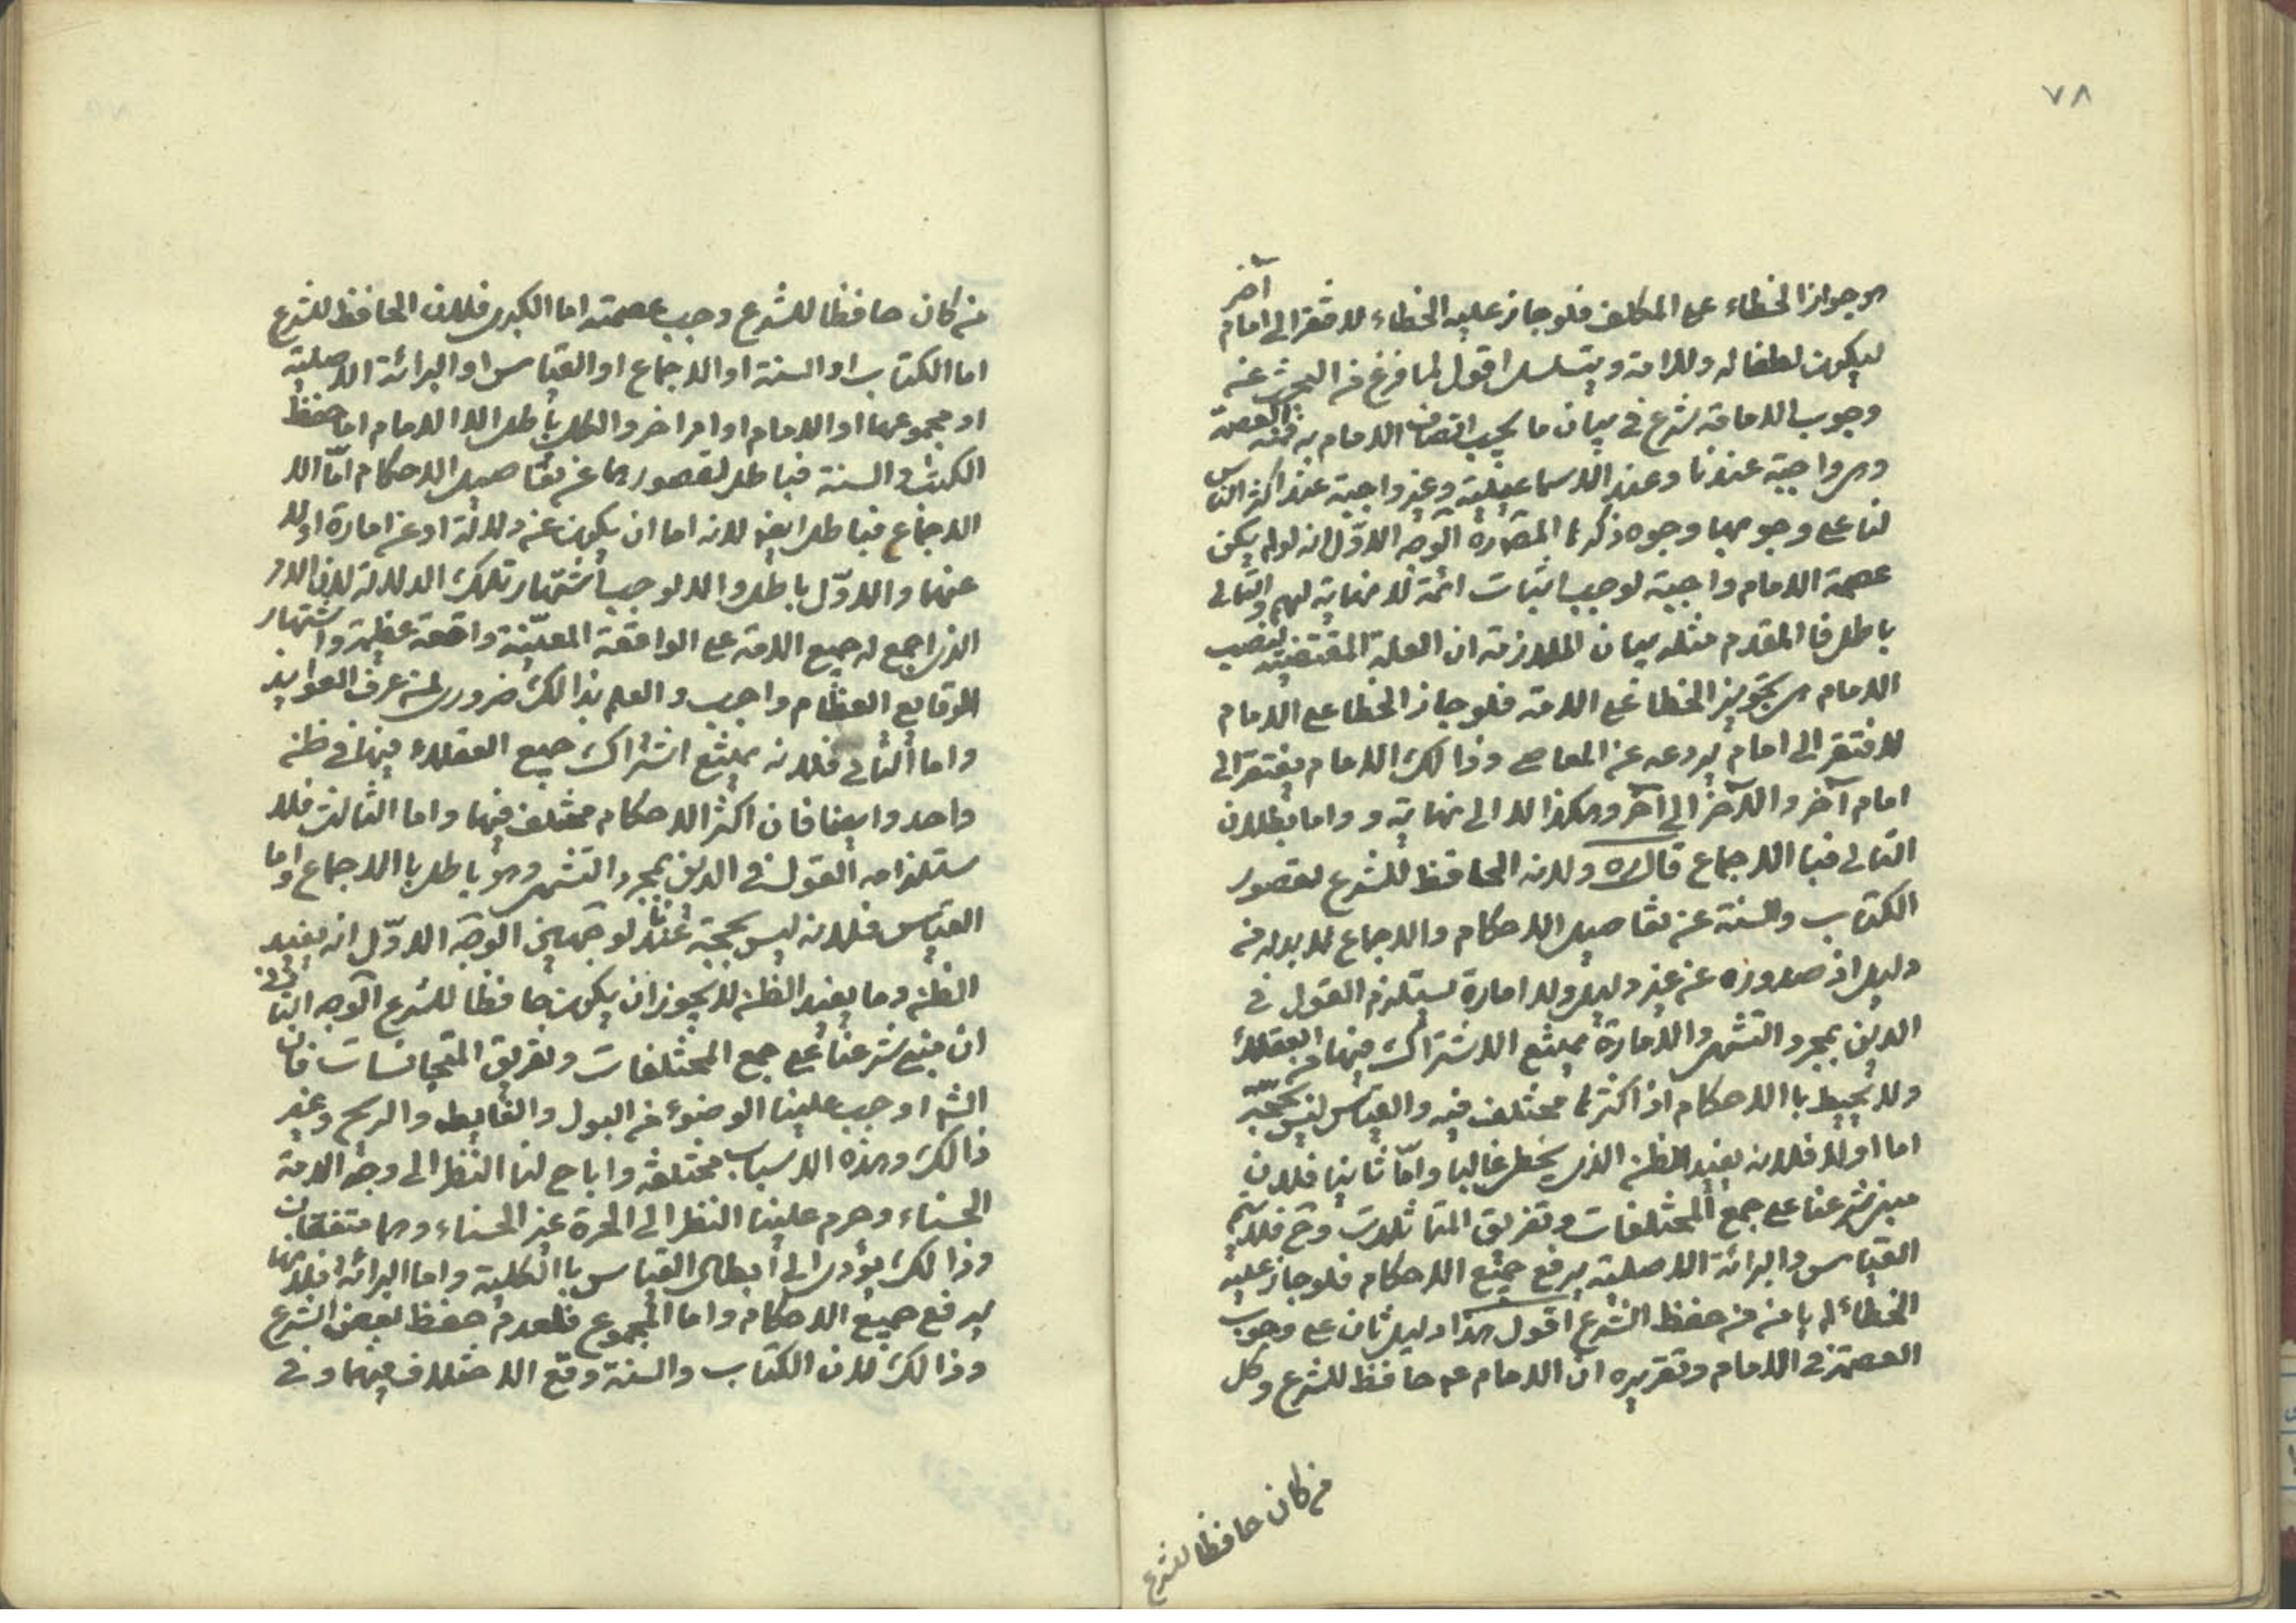 ٧٨
هو جواز الخطاء على المكلف فلو جاز عليه الخطاء لافتقر الى امام آخر
ليكون لطفا له وللامة ويتسلسل اقول لما فرغ من البحث عن
وجوب الامامة شرع في بيان ما يجب اتصاف الامام به فمنه العصمة
وهي واجبة عندنا وعند الاسماعيلية وغير واجبة عند اكثر الناس
لنا على وجوبها وجوه ذكرها المص ره الوجه الاوّل انه لو لم يكن
عصمة الامام واجبة لوجب اثبات ائمة لا نهاية لهم والتالى
باطل فا المقدم مثله بيان الملازمة ان العلة المقتضية لنصب
الامام هى تجويز الخطا على الامة فلو جاز الخطا على الامام
لافتقر الى امام يردعه عن المعاصى وذالك الامام يفتقر الى
امام آخر والآخر الى آخر وهكذا لا الى نهاية و واما بطلان
التالى فبا الاجماع قال ره ولانه الحافظ للشرع لقصور
الكتاب والسنة عن تفاصيل الاحكام والاجماع لا بد له من
دليل اذ صدوره عن غير دليل ولا امارة يستلزم القول في
الدين بمجرد التشهى والامارة يمتنع الاشتراك فيها من العقلاء
ولا يحيط با الاحكام اذ اكثرها مختلف فيه والقياس ليس بحجة
اما اولا فلانه يفيد الظن الذى يخطى غالبا وامّا ثانيا فلان
مبنى شرعنا على جمع المختلفات وتفريق المتماثلات وح فلا يتم
القياس والبرائة الاصلية يرفع جميع الاحكام فلو جاز عليه
الخطائ لم يامن من حفظ الشرع اقول هذا دليل ثان على وجوب
العصمة في الامام وتقريره ان الامام عه حافظ للشرع وكل
من كان حافظا للشرع
من كان حافظا للشرع وجب عصمته اما الكبرى فلان الحافظ للشرع
اما الكتاب او السنة او الاجماع او القياس او البرائة الاصلية
او مجموعها او الامام او امر اخر والكل باطل الا الامام اما حفظ
الكتاب والسنة فباطل لقصورهما عن تفاصيل الاحكام امّا الا
الاجماع فباطل ايضا لانه اما ان يكون عن دلالة او عن امارة او لا
عنهما والاوّل باطل والا لوجب اشتهار تلك الدلالة لان الامر
الذى اجمع له جميع الامة على الواقعة المعيّنة واقعة عظيمة واشتهار
الوقايع العظام واجب والعلم بذالك ضرورى لمن عرف العوايد
واما الثانى فلانه يمتنع اشتراك جميع العقلاء فيها في ظن
واحد وايضا فان اكثر الاحكام مختلف فيها واما الثالث فلا
ستلزامه القول في الدين بمجرد التشهى وهو باطل با الاجماع واما
القياس فلانه ليس بحجة عندنا لوجهين الوجه الاوّل انه يفيد
الظن وما يفيد الظن لا يجوز ان يكون حافظا للشرع الوجه الثانى
ان مبنى شرعنا على جمع المختلفات وتفريق المتجانسات فان
الشه اوجب علينا الوضوء من البول والغايط والريح وغير
ذالك وهذه الاسباب مختلفة واباح لنا النظر الى وجه الامة
الحسناء وحرم علينا النظر الى الحرة غير الحسناء وهما متفقان
وذالك يؤدى الى ابطال القياس با الكلية واما البرائة فلانها
يرفع جميع الاحكام واما المجموع فلعدم حفظ بعض الشرع
وذالك لان الكتاب والسنة وقع الاختلاف فيهما وفى